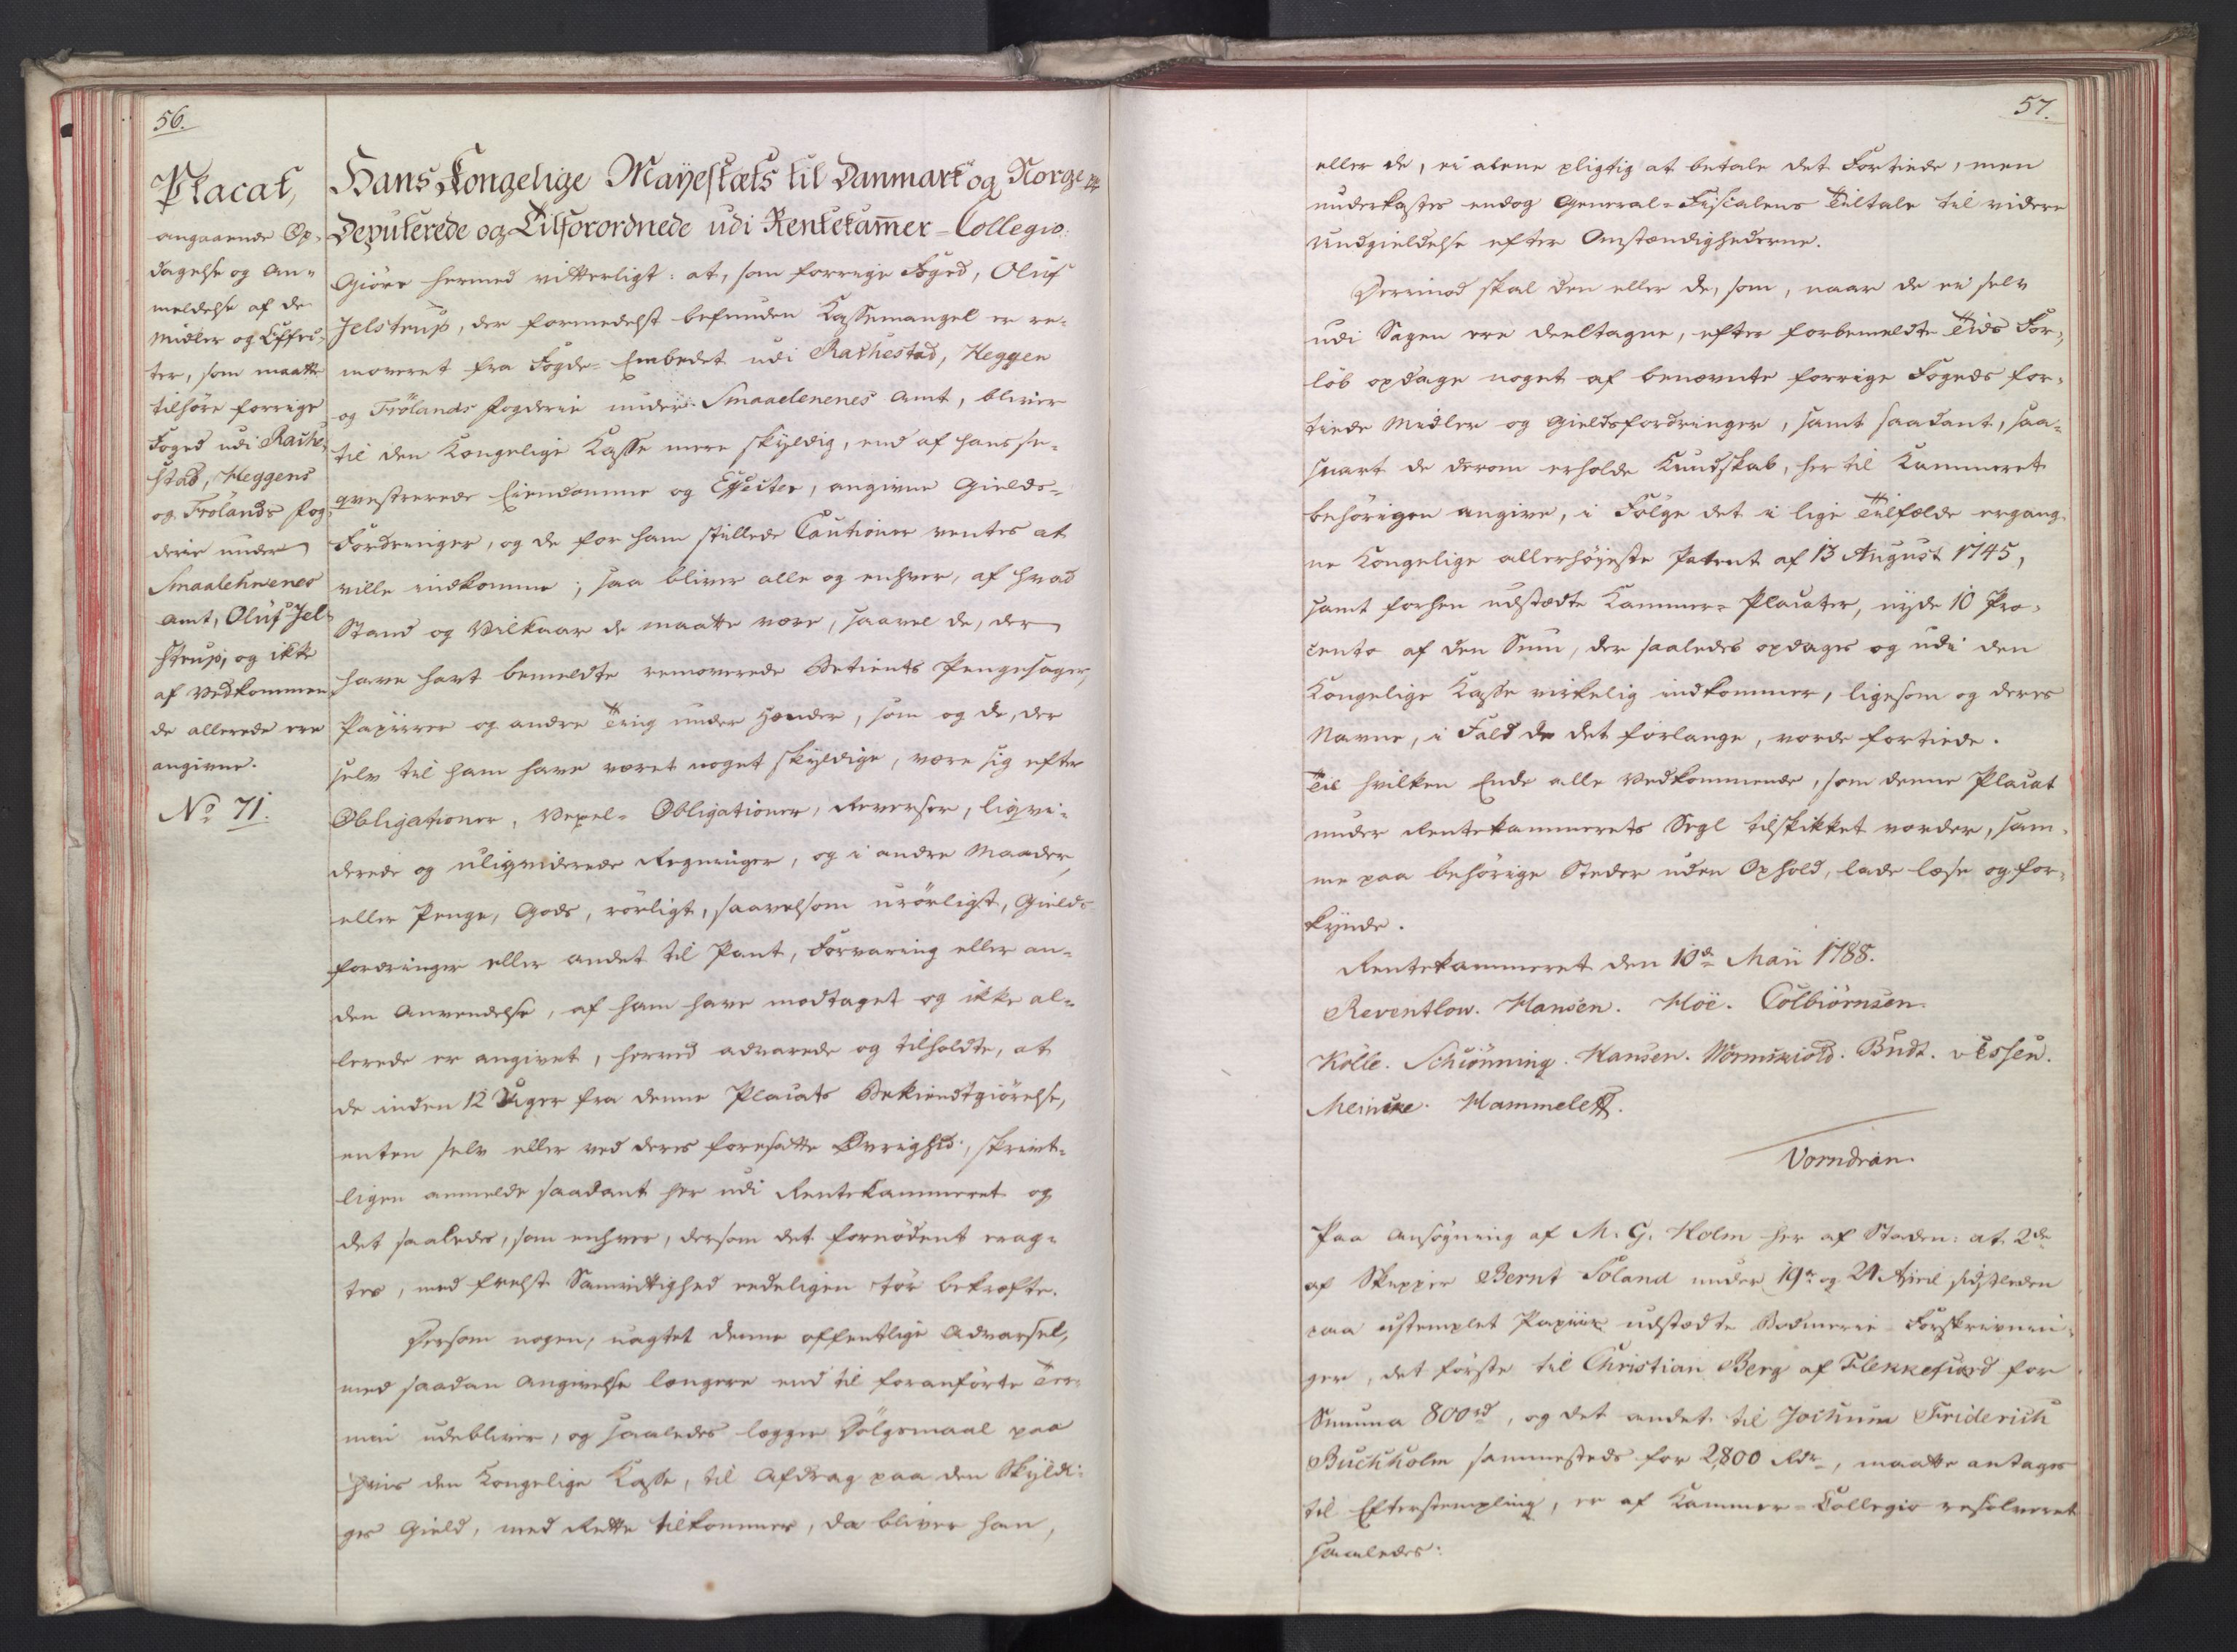 56.
Placat,
angaaende Op-
dagelse og An-
meldelse af de
Midler og Effec-
ter, som maatte
tilhøre forrige
Foged udi Rakke-
stad, Heggens
og Frölands Fog-
derie under
Smaalehnenes
Amt, Oluf Jel-
strup, og ikke
af Vedkommen-
de allerede ere
angivne.
No 71.
Hans Kongelige Mayestæts til Danmark og Norge etc
Deputerede og Tilforordnede udi Rentekammer-Collegio:
Giöre hermed vitterligt: at, som forrige Foged, Oluf
Jelstrup, der formedelst befunden Kassemangel er re-
moveret fra Fogde-Embedet udi Rakkestad, Heggen
og Frölands Fogderie under Smaalenenes Amt, bliver
til den Kongelige Kasse mere skyldig, end af hans se-
qvestrerede Eiendomme og Effecter, angivne Gields-
Fordringer, og de for ham stillede Cautioner ventes at
ville indkomme; saa bliver alle og enhver, af hvad
Stand og Vilkaar de maatte være, saavel de, der
have havt bemeldte removerede Betients Pengesager,
Papiirer og andre Ting under Hænder, som og de, der
selv til ham have været noget skyldige, være sig efter
Obligationer, Vexel-Obligationer, Reverser, liqvi-
derede og uliqviderede Regninger, og i andre Maader,
eller Penge, Gods, rörligt, saavelsom urörligt, Gields-
fordringer eller andet til Pant, Forvaring eller an-
den Anvendelse, af ham have modtaget og ikke al-
lerede er angivet, herved advarede og tilholdte, at
de inden 12 Uger fra denne Placats Bekiendtgiörelse,
enten selv eller ved deres foresatte Øvrighed, skrivt-
ligen anmelde saadant her udi Rentekammeret og
det saaledes, som enhver, dersom det fornödent erag-
tes, med frelst Samvittighed eedeligen tör bekræfte.
Dersom nogen, uagtet denne offentlige Advarsel,
med saadan Angivelse længere end til foranförte Ter-
min udebliver, og saaledes lægger Dölgsmaal paa
hvis den Kongelige Kasse, til Afdrag paa den Skyldi-
ges Gield, med Rette tilkommer, da bliver han,
57.
eller de, ei alene pligtig at betale det Fortiede, men
underkastes endog General-Fiscalens Tiltale til videre
Undgieldelse efter Omstændighederne.
Derimod skal den eller de, som, naar de ei selv
udi Sagen ere deeltagne, efter forbemeldte Tids For-
löb opdage noget af benævnte forrige Fogeds for-
tiede Midler og Gieldsfordringer, samt saadant, saa-
snart de derom erholde Kundskab, her til Kammeret
behörigen angive, i Fölge det i lige Tilfælde ergang-
ne Kongelige allerhöjeste Patent af 13 August 1745,
samt forhen udstædte Kammer-Placater, nyde 10 Pro-
cento af den Sum, der saaledes opdages og udi den
Kongelige Kasse virkelig indkommer, ligesom og deres
Navne, i Fald de det forlange, vorde fortiede.
Til hvilken Ende alle Vedkommende, som denne Placat
under Rentekammerets Segl tilskikket vorder, sam-
me paa behörige Steder uden Ophold, lade læse og for-
kynde.
Rentekammeret den 10de Maii 1788.
Reventlow. Hansen. Höe. Colbiörnsen.
Kölle. Schiönning. Hansen. Wormskiold. Budt. v Essen.
Meincke. Hammeleff.
Vorndran.
Paa Ansögning af M. G. Holm her af Staden: at 2de
af Skipper Bernt Soland under 19de og 21 April sidstleden
paa ustemplet Papiir udstædte Bodmerie-Forskrivnin-
ger, det förste til Christian Berg af Flekkefiord for
Summa 800rd, og det andet til Jochum Friderich
Buchholm sammesteds for 2800 Rdr, maatte antages
til Efterstempling, er af Kammer-Collegio resolveret
saaledes: